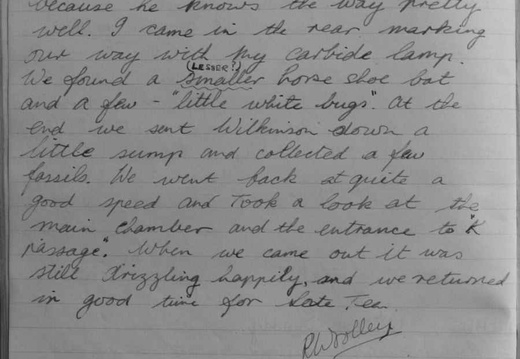 because he knows the way pretty
well. I came in the rear, marking
our way with my carbide lamp.
(LESSER?)
We found a smaller horse shoe bat
and a few - "little white bugs". At the
end we sent Wilkinson down a
little sump and collected a few
fossils. We went back at quite a
good speed and took a look at the
main chamber and the entrance to "K
passage". When we came out it was
still drizzling happily, and we returned
in good time for late Tea.
R Wolley